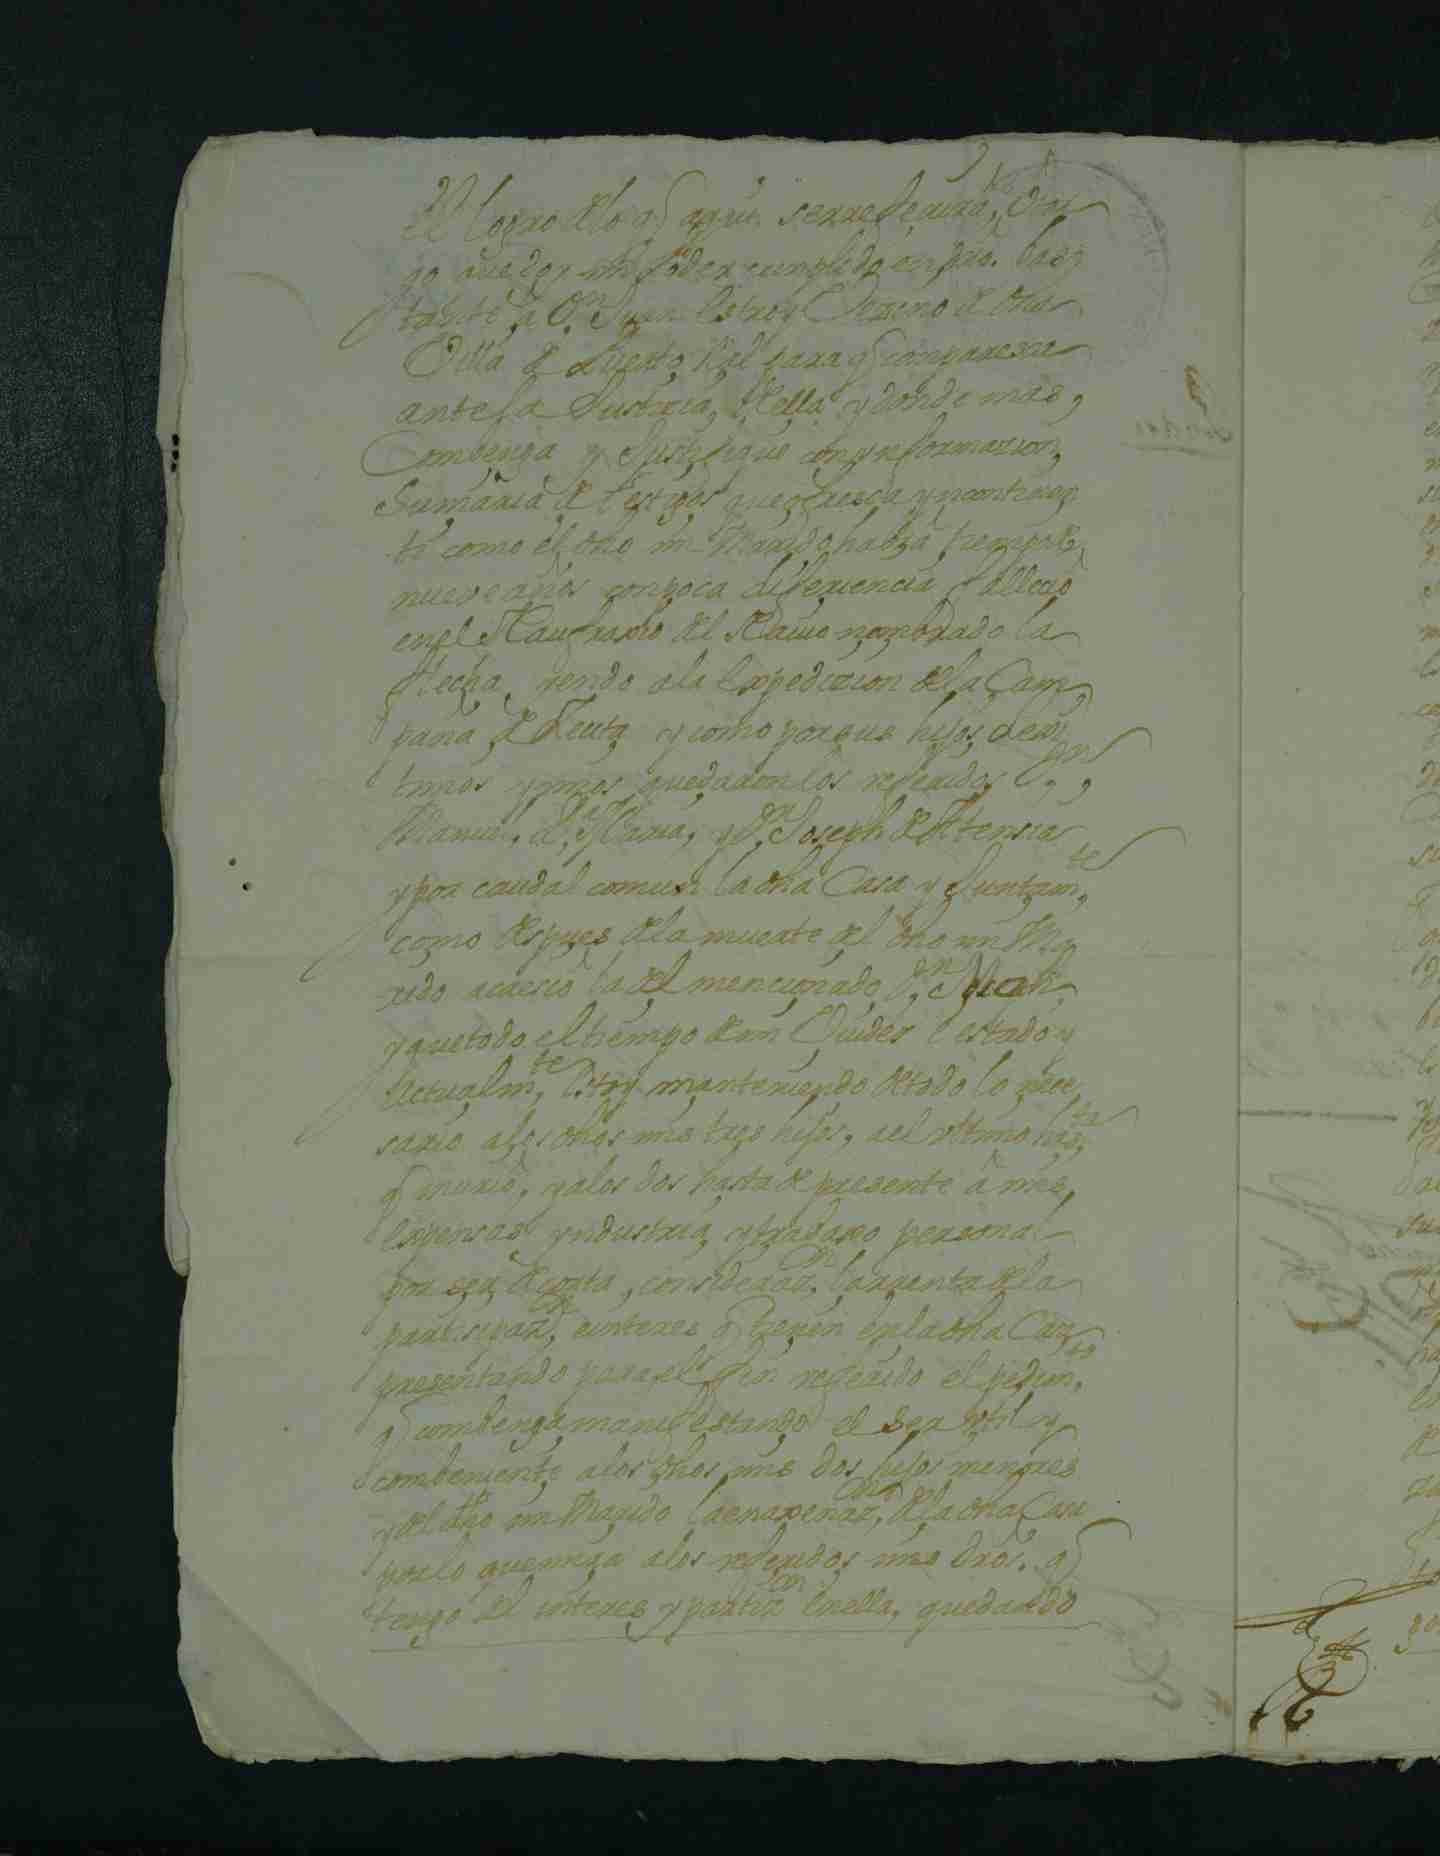 el logro de lo q aqui se rreferira, otor
go que doy mi Poder cumplido en dro. bas
tante a Dn. Juan Vezino de dha
Villa de Puerto Rl. para q comparesca
ante la Justicia, della y donde mas,
Combenga y Justifique con ynformazion,
Sumaria de testigos que ofresca yncontinen
ti como el dho mi Marido habra tiempo de
nueve años con poca diferiencia fallecio
en el Naufraxio del Navio nombrado la
flecha, yendo a la Expedizion de la Cam
paña, de Zeuta y como por sus hijos lexi
timos y mios quedaron los referidos Dn,
Da. Maria, y Dn. Joseph de Atensia
y por caudal comun la dha Casa y Juntamte,
como despues de la muerte del dho mi Ma
rido acaecio la del mencionado Dn.
y que todo el tiempo de mi Viudes e estado y
Actualmte, Estoy manteniendo de todo lo nece
sario a los dhos mis tres hijos, a el ultimo hta,
q murio, y a los dos hasta de presente a mis,
Expensas yndustria, y trabaxo personal
por ser de corta, considerazn. la rrenta de la
partisipazn, e interes q tienen en la dha Casa
presentando para el fin referido el pedimto,
q combenga manifestando el ser util y
combeniente a los dhos mis dos hijos menores
y del dho mi Marido la enaxenazn. de la dha Casa
por lo que mira a los referidos mis dros. q
tengo del interes y partizn en ella, quedando